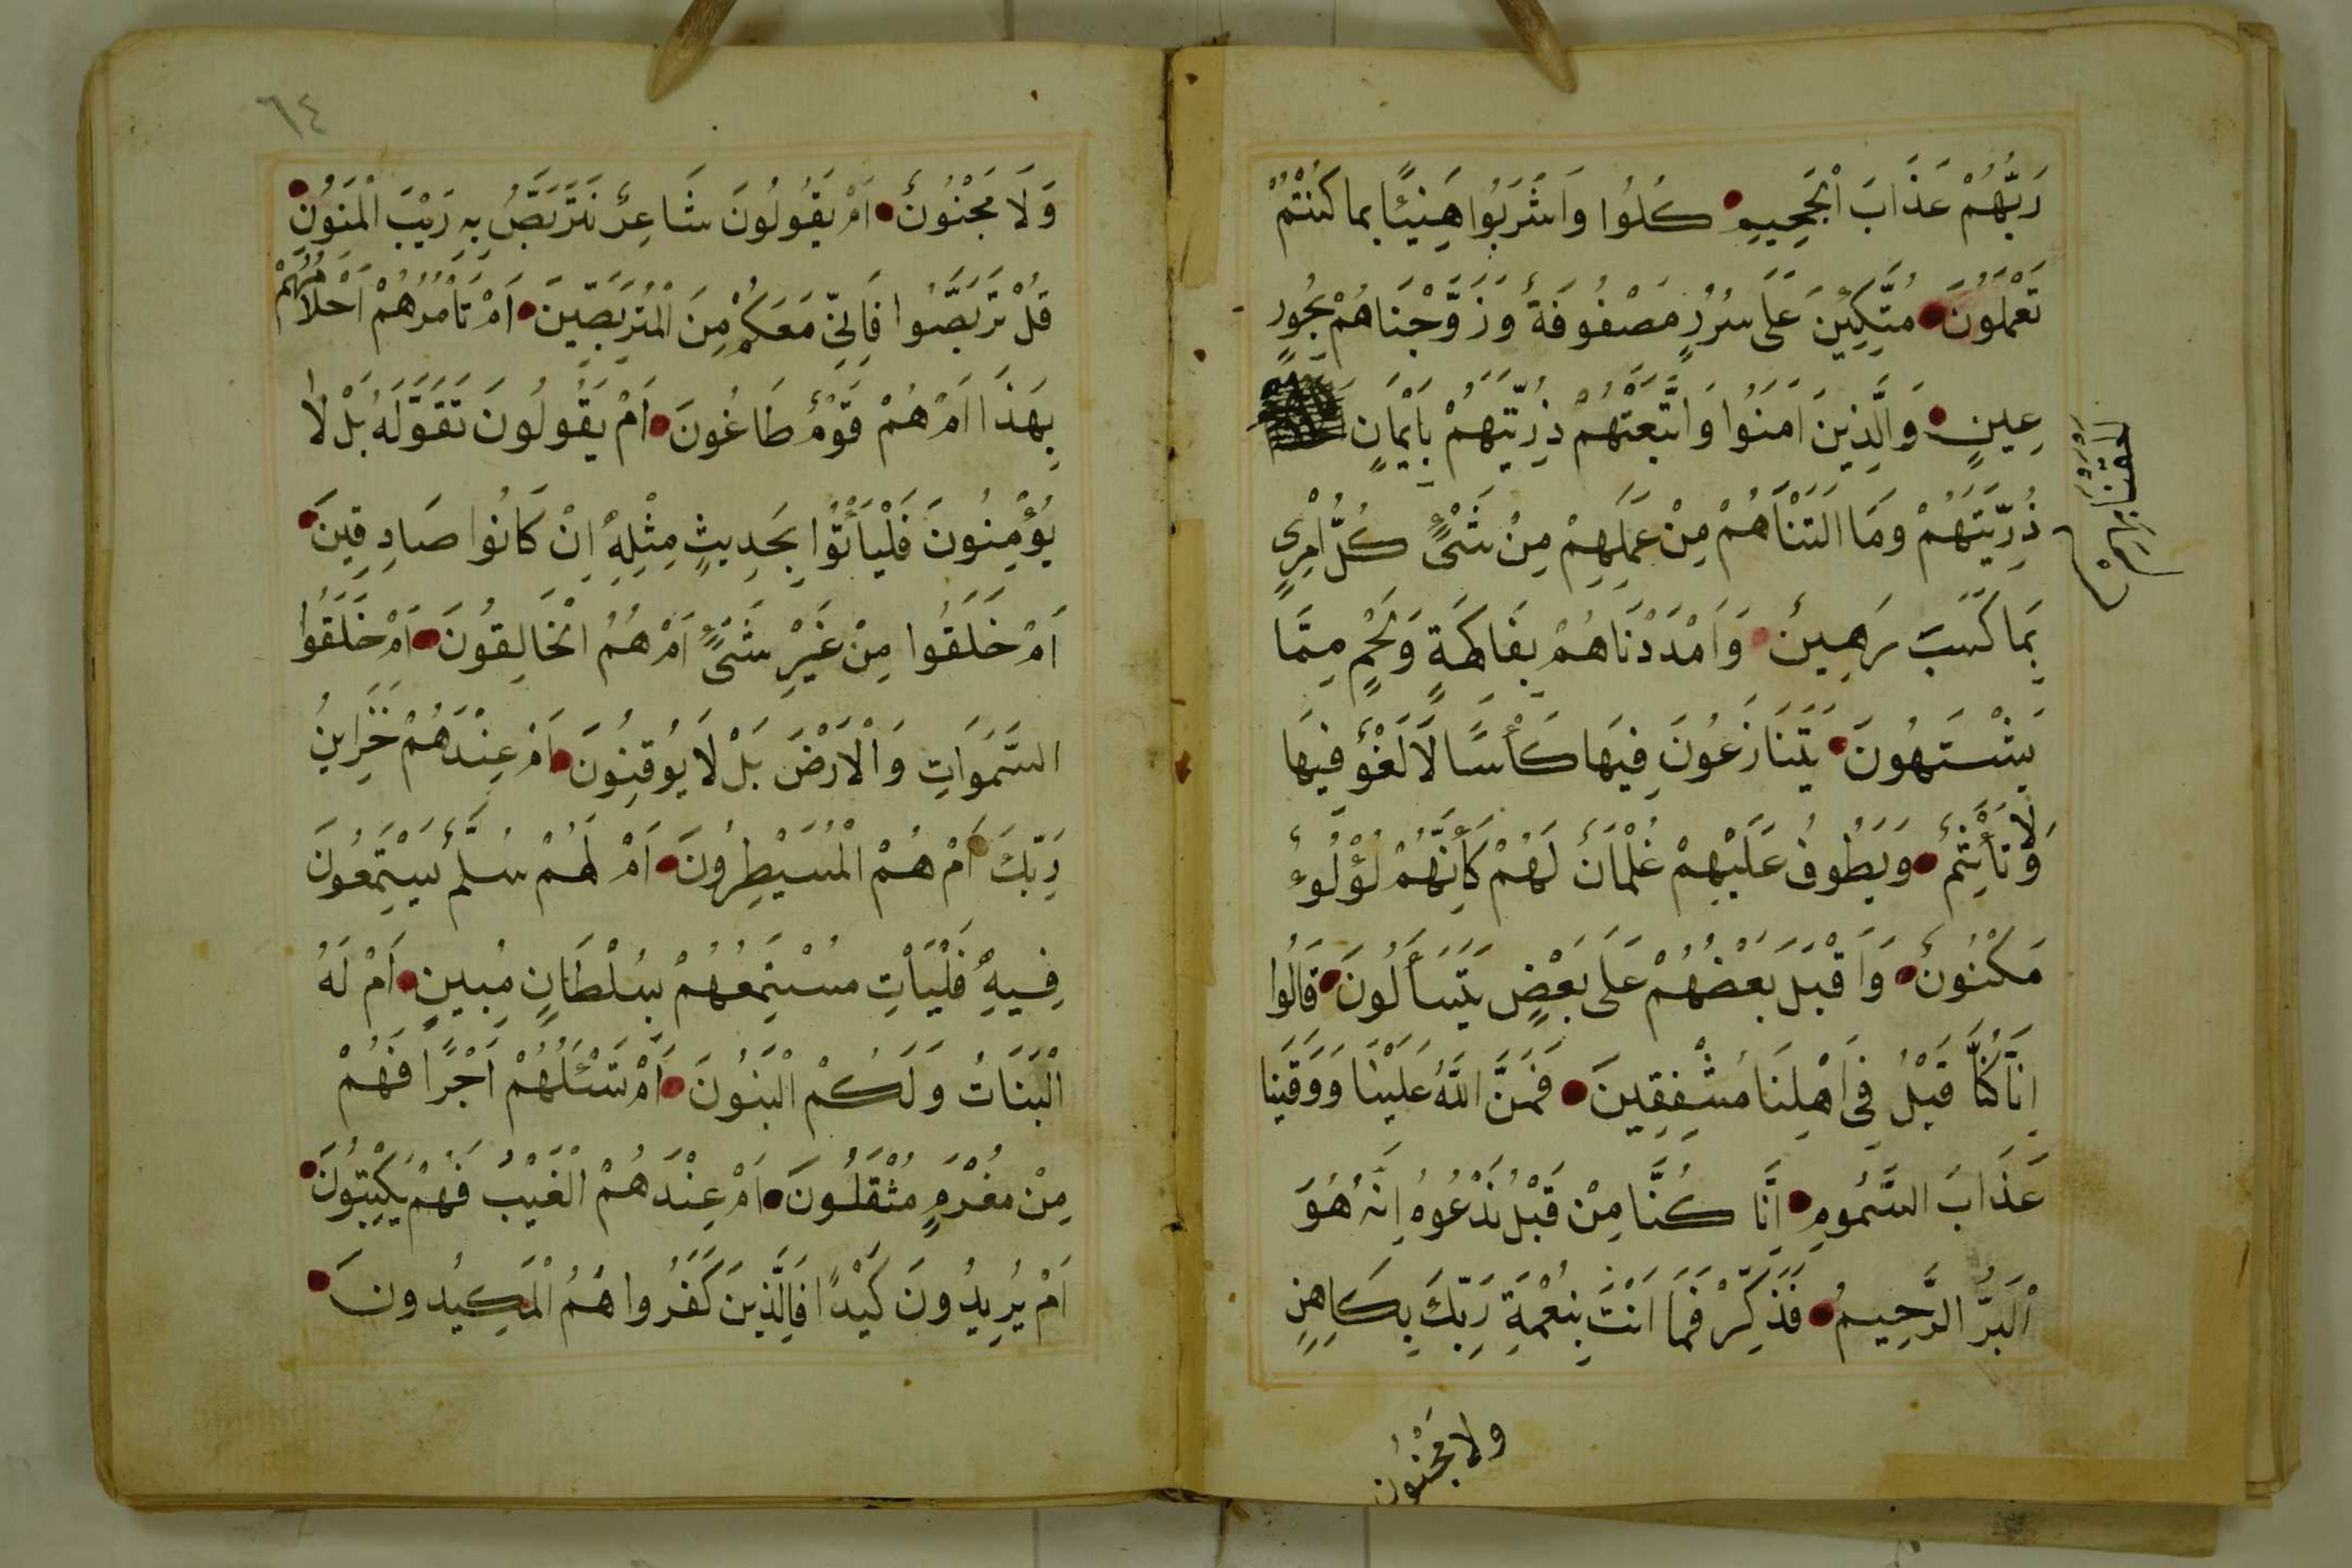 رَبُّهُمْ عَذَابَ الْجَحِيمِ كُلُوا وَاشْرَبُوا هَنِيئًا بِمَا كُنْتُمْ
تَعْمَلُونَ مُتَّكِئِينَ عَلَى سُرُرٍ مَصْفُوفَةٍ وَزَوَّجْنَاهُمْ بِحُورٍ
عِينٍ وَالَّذِينَ اٰمَنُوا وَاتَّبَعَتْهُمْ ذُرِّيَّتُهُمْ بِاِيْمَانٍ
اَلْحَقْنَا بِهِمْ
ذُرِّيَّتَهُمْ وَمَا اَلَتْنَاهُمْ مِنْ عَمَلِهِمْ مِنْ شَىْءٍ كُلُّ امْرِئٍ
بِمَا كَسَبَ رَهِينٌ وَاَمْدَدْنَاهُمْ بِفَاكِهَةٍ وَلَحْمٍ مِمَّا
يَشْتَهُونَ يَتَنَازَعُونَ فِيهَا كَأْسًا لَا لَغْوٌ فِيهَا
وَلَا تَأْثِيمٌ وَيَطُوفُ عَلَيْهِمْ غِلْمَانٌ لَهُمْ كَأَنَّهُمْ لُؤْلُؤٌ
مَكْنُونٌ وَاَقْبَلَ بَعْضُهُمْ عَلَى بَعْضٍ يَتَسَاَلُونَ قَالُوا
اِنَّا كُنَّا قَبْلُ فِى اَهْلِنَا مُشْفِقِينَ فَمَنَّ اللّٰهُ عَلَيْنَا وَوَقَيٰنَا
عَذَابَ السَّمُومِ اِنَّا كُنَّا مِنْ قَبْلُ نَدْعُوهُ اِنَّهُ هُوَ
الْبَرُّ الرَّحِيمُ فَذَكِّرْ فَمَا اَنْتَ بِنِعْمَةِ رَبِّكَ بِكَاهِنٍ
ولا مَجْنُون
٦٤
وَلَا مَجْنُونٌ اَمْ يَقُولُونَ شَاعِرٌ نَتَرَبَّصُ بِهِ رَيْبَ الْمَنُونِ
قُلْ تَرَبَّصُوا فَاِنِّى مَعَكُمْ مِنَ الْمُتَرَبِّصِينَ اَمْ تَاْمُرُهُمْ اَحْلَامُهُمْ
بِهَذَا اَمْ هُمْ قَوْمٌ طَاغُونَ اَمْ يَقُولُونَ تَقَوَّلَهُ بَلْ لَا
يُؤْمِنُونَ فَلْيَأْتُوا بِحَدِيثٍ مِثْلِهِ اِنْ كَانُوا صَادِقِينَ
اَمْ خُلِقُوا مِنْ غَيْرِ شَىْءٍ اَمْ هُمُ الْخَالِقُونَ اَمْ خَلَقُوا
السَّمَوَاتِ وَالْاَرْضَ بَلْ لَا يُوقِنُونَ اَمْ عِنْدَهُمْ خَزَاىِٔنُ
رَبِّكَ اَمْ هُمُ الْمُسَيْطِرُونَ اَمْ لَهُمْ سُلَّمٌ يَسْتَمِعُونَ
فِيهِ فَلْيَأْتِ مُسْتَمِعُهُمْ بِسُلْطَانٍ مُبِينٍ اَمْ لَهُ
الْبَنَاتُ وَلَكُمُ الْبَنُونَ اَمْ تَسْئَلُهُمْ اَجْرًا فَهُمْ
مِنْ مَغْرَمٍ مُثْقَلُونَ اَمْ عِنْدَهُمُ الْغَيْبُ فَهُمْ يَكْتُبُونَ
اَمْ يُرِيدُونَ كَيْدًا فَالَّذِينَ كَفَرُوا هُمُ الْمَكِيدُونَ